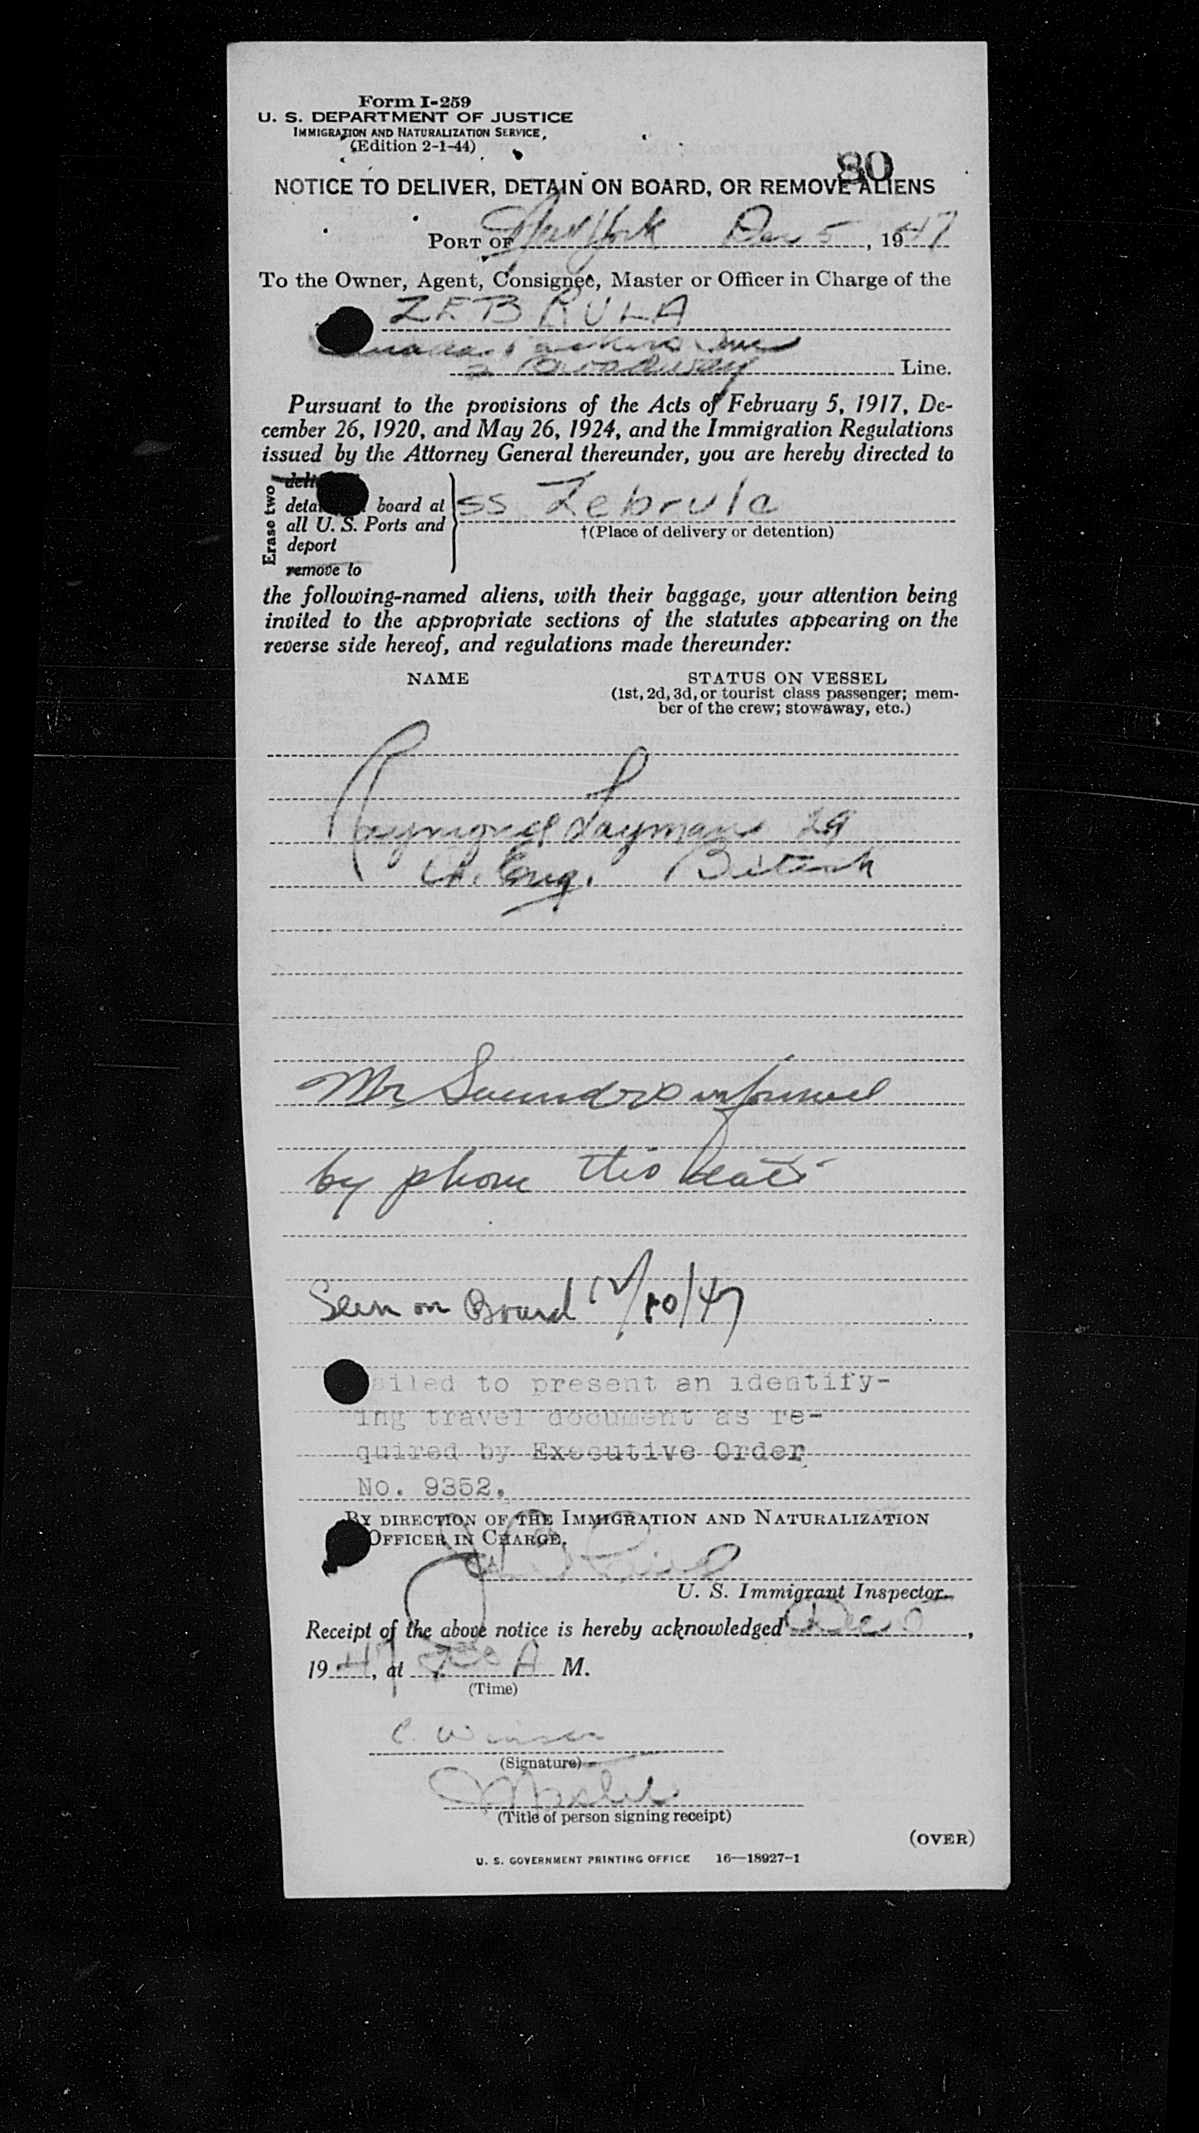 Form I-259
U. S. DEPARTMENT OF JUSTICE
IMMIGRATION AND NATURALIZATION SERVICE
(Edition 2-1-44)
80
NOTICE TO DELIVER, DETAIN ON BOARD, OR REMOVE ALIENS
PORT OF New York Dec 5, 1947
To the Owner, Agent, Consignee, Master or Officer in Charge of the
ZEBRULA
Packers Inc
2 Broadway Line.
Pursuant to the provisions of the Acts of February 5, 1917, De-
cember 26, 1920, and May 26, 1924, and the Immigration Regulations
issued by the Attorney General thereunder, you are hereby directed to
Erase two
board at
all U. S. Ports and
deport
remove to
SS Zebrula
†(Place of delivery or detention)
the following-named aliens, with their baggage, your attention being
invited to the appropriate sections of the statutes appearing on the
reverse side hereof, and regulations made thereunder:
NAME STATUS ON VESSEL
(1st, 2d, 3d, or tourist class passenger; mem-
ber of the crew; stowaway, etc.)
Raymond Layman 29
Ch. Eng. British
Mr Saunders informed
by phone this date
Seen on Board 12/10/47
ailed to present an identify-
ing travel document as re-
quired by Executive Order
No. 9352.
BY DIRECTION OF THE IMMIGRATION AND NATURALIZATION
OFFICER IN CHARGE.
U. S. Immigrant Inspector.
Receipt of the above notice is hereby acknowledged Dec 5,
1947, at A M.
(Time)
C.
(Signature)
Master
(Title of person signing receipt)
(OVER)
U. S. GOVERNMENT PRINTING OFFICE 16—18927-1